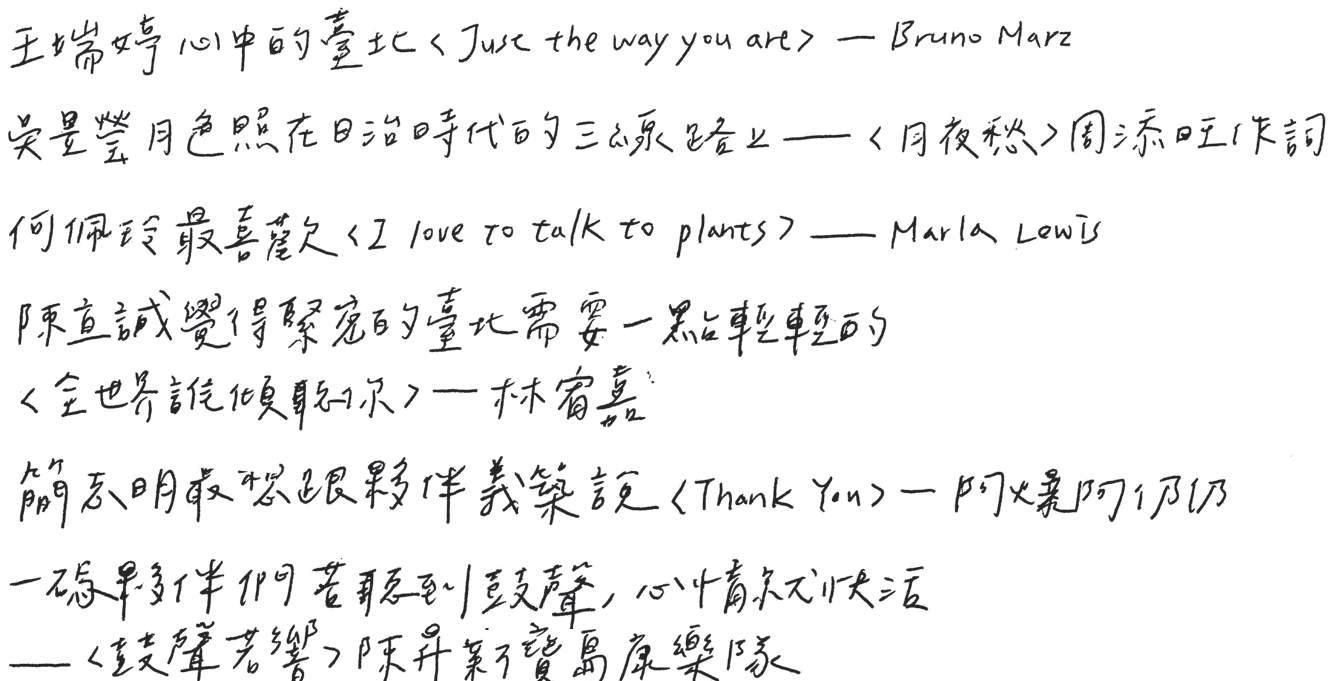 王瑞婷心中的臺北〈Just the way you are〉— Bruno Marz
吳昱瑩月色照在日治時代的三線路上——〈月夜愁〉周添旺作詞
何佩玲最喜歡〈I love to talk to plants〉—— Marla Lewis
陳宣誠覺得緊密的臺北需要一點輕輕的
〈全世界誰傾聽你〉— 林宥嘉
簡志明最想跟夥伴義築說〈Thank You〉— 阿爆阿仍仍
一碗夥伴們若聽到鼓聲,心情就快活
——〈鼓聲若響〉陳昇新寶島康樂隊